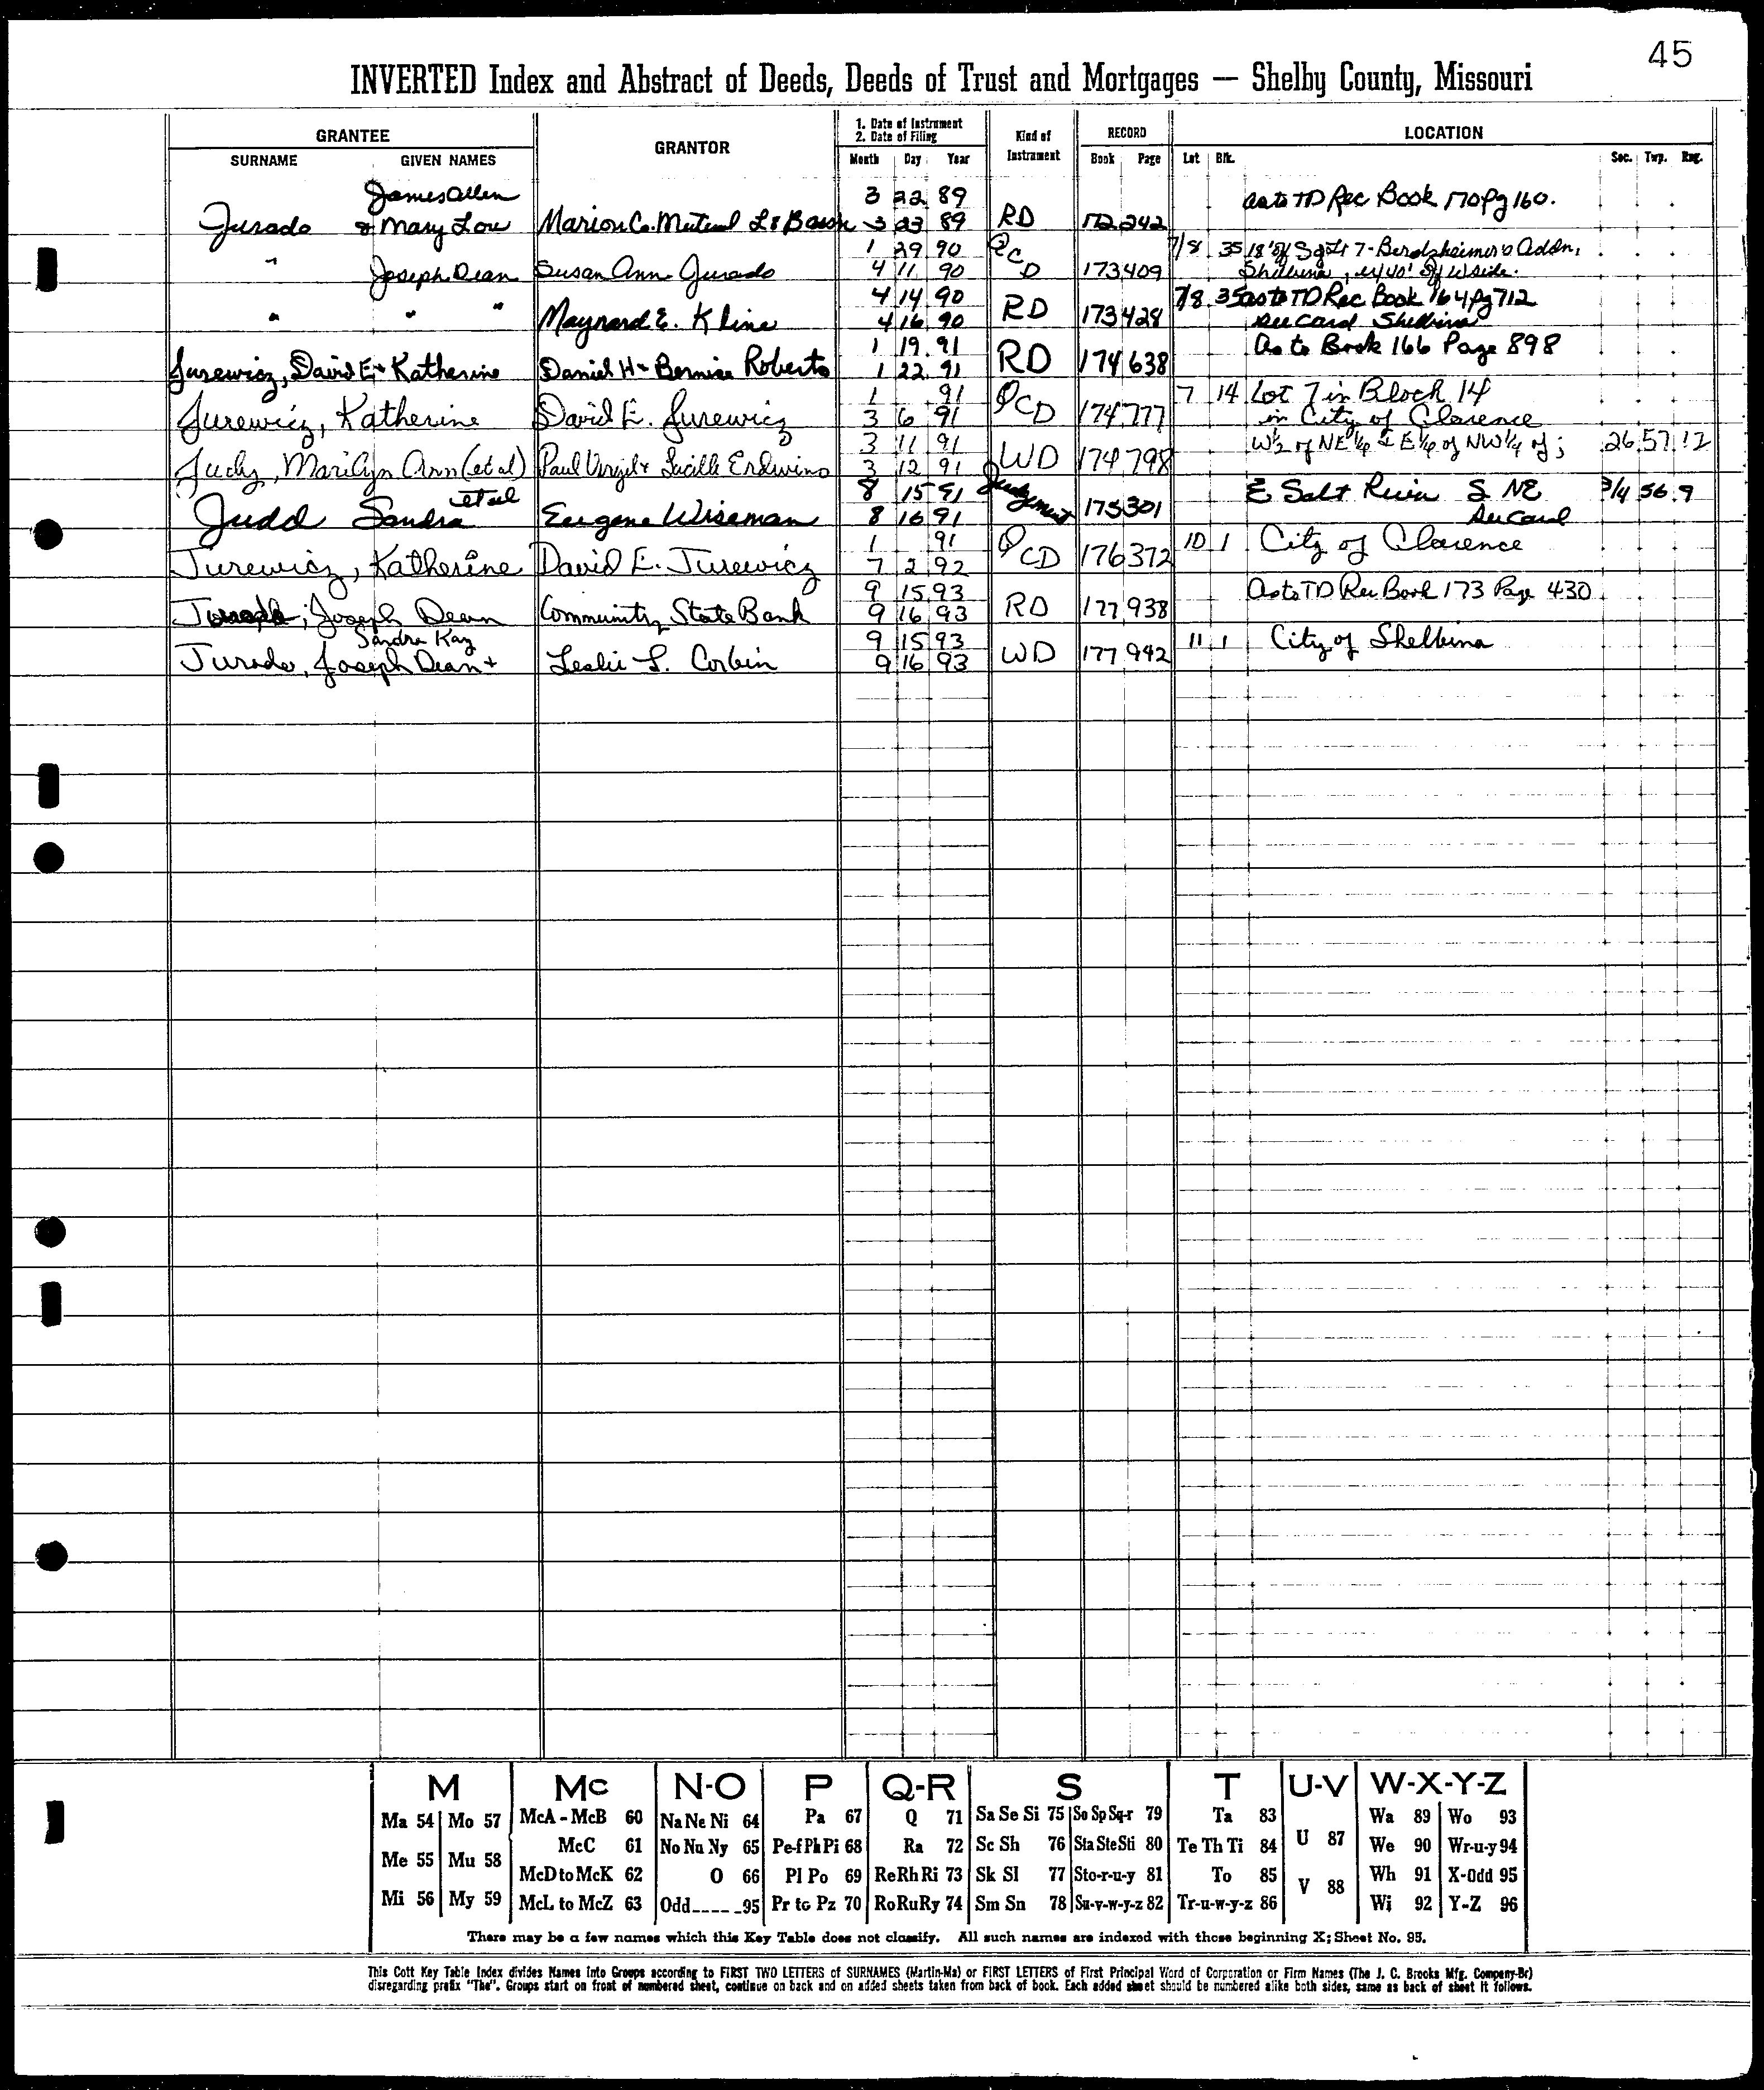 45
INVERTED Index and Abstract of Deeds, Deeds of Trust and Mortgages — Shelby County, Missouri
GRANTEE GRANTOR 1. Date of Instrument 2. Date of Filing Kind of Instrument RECORD LOCATION
SURNAME GIVEN NAMES Month Day Year Book Page Lot Blk. Sec. Twp. Rng.
James Allen 3 22 89 as to TD Rec Book 170 Pg 160.
Jurado & Mary Lou Marion Co. Mutual 3 23 89 RD 172 242
1 29 90 QC 7/8 35 18' of S Lt 7- Berdzheimer's Addn,
" Joseph Dean Susan Ann Jurado 4 11 90 D 173 409 Shelbina, W side.
4 14 90 7/8 35 as to TD Rec Book 164 Pg 712
" " " Maynard E. Kline 4 16 90 RD 173 428 See Card Shelbina
1 19 91 As to Book 166 Page 898
Jurewicz, David E + Katherine Daniel H + Bernice Roberts 1 22 91 RD 174 638
1 91 7 14 Lot 7 in Block 14
Jurewicz, Katherine David E. Jurewicz 3 6 91 QCD 174 777 in City of Clarence
3 11 91 W½ of NE¼ & E½ of NW¼ of; 26 57 12
Judy, Marilyn Ann (et al) Paul Virgil + Lucille Erdwins 3 12 91 WD 174 798
et al 8 15 91 Judgement E Salt River S NE 3/4 56 9
Judd Sandra Eugene Wiseman 8 16 91 175 301 See Card
1 91 10 1 City of Clarence
Jurewicz, Katherine David E. Jurewicz 7 2 92 QCD 176 372
9 15 93 As to TD Rec Book 173 Page 430
Jurado, Joseph Dean Community State Bank 9 16 93 RD 177 938
Sandra Kay 9 15 93 11 1 City of Shelbina
Jurado, Joseph Dean + Leslie L. Corbin 9 16 93 WD 177 942
M Mc N-O P Q-R S T U-V W-X-Y-Z
Ma 54 Mo 57 McA - McB 60 Na Ne Ni 64 Pa 67 Q 71 Sa Se Si 75 So Sp Sq-r 79 Ta 83 U 87 Wa 89 Wo 93
Me 55 Mu 58 McC 61 No Nu Ny 65 Pe-f Ph Pi 68 Ra 72 Sc Sh 76 Sta Ste Sti 80 Te Th Ti 84 We 90 Wr-u-y 94
McD to McK 62 O 66 Pl Po 69 Re Rh Ri 73 Sk Sl 77 Sto-r-u-y 81 To 85 V 88 Wh 91 X-Odd 95
Mi 56 My 59 McL to McZ 63 Odd 95 Pr to Pz 70 Ro Ru Ry 74 Sm Sn 78 Su-v-w-y-z 82 Tr-u-w-y-z 86 Wi 92 Y-Z 96
There may be a few names which this Key Table does not classify. All such names are indexed with those beginning X; Sheet No. 95.
This Cott Key Table Index divides Names into Groups according to FIRST TWO LETTERS of SURNAMES (Martin-Ma) or FIRST LETTERS of First Principal Word of Corporation or Firm Names (The J. C. Brooks Mfg. Company-Br)
disregarding prefix "The". Groups start on front of numbered sheet, continue on back and on added sheets taken from back of book. Each added sheet should be numbered alike both sides, same as back of sheet it follows.